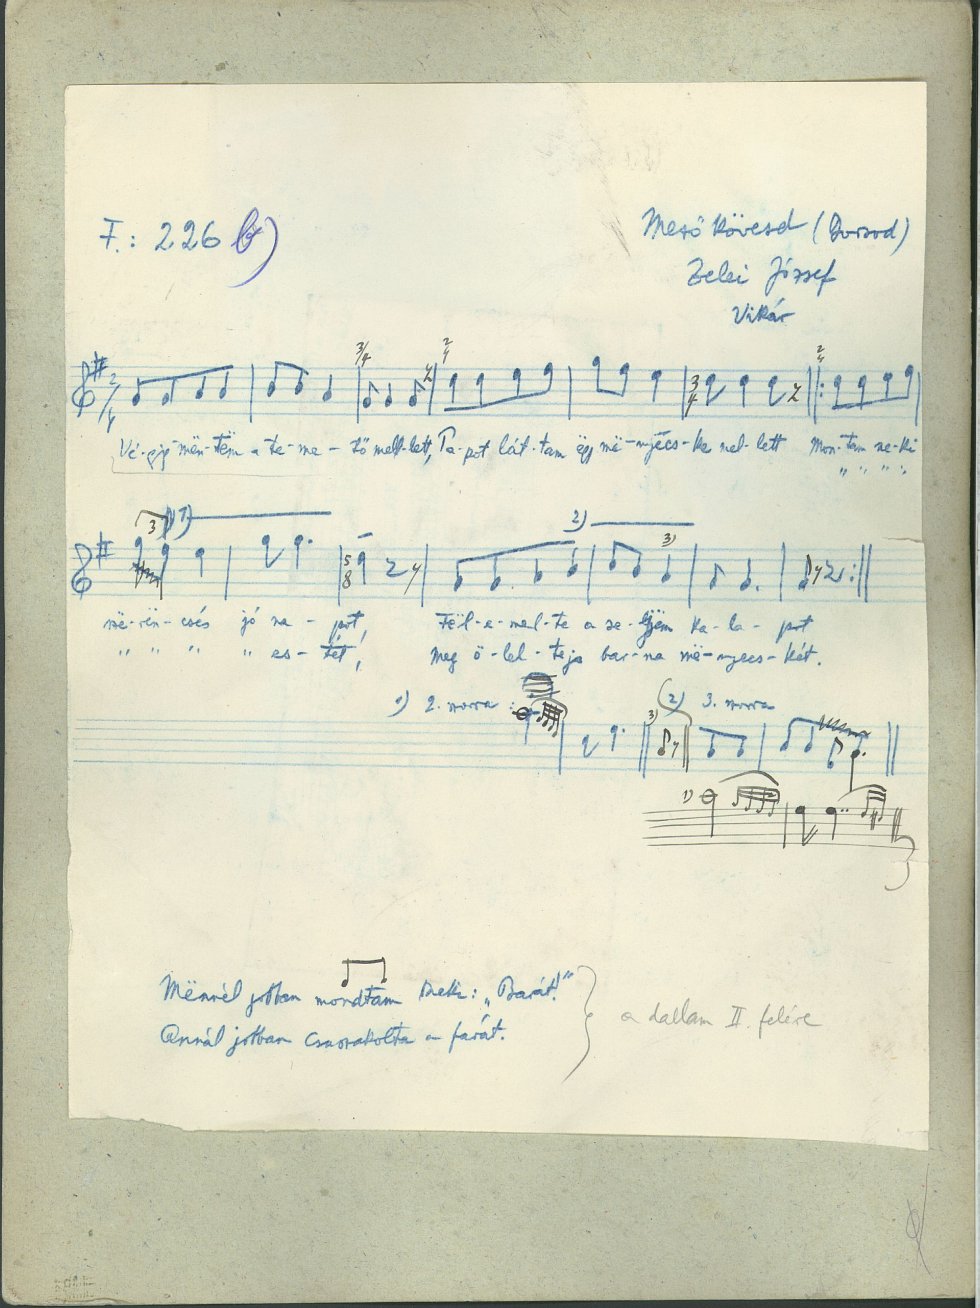 F.: 226 b)
Mezőkövesd (Borsod)
Zelei József
Vikár
Vé-gig mën-tëm a te-me-tő mell-lett, Pa-pot lát-tam ëgy më-nyecs-ke mel-lett Mon-tam ne-ki
" " " "
3 1) 2) 3)
në-rën-csés jó na-pot, Fël-e-mel-te a ka-la-pot
" " " " es-tét, Meg ö-lel-te ja bar-na më-nyecs-két.
1) 2. 3) 2) 3.
1)
Mënnél jobban mondtam neki: „Barát!"
Annál jobban csavarta a farát.
a dallam II. felére